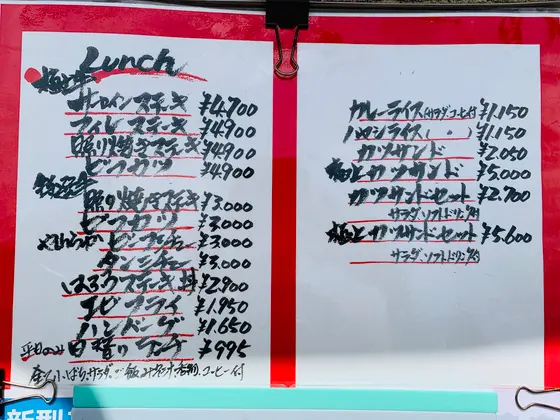 Lunch
極上牛
サーロインステーキ ¥4,700
フィレステーキ ¥4,900
照り焼きステーキ ¥4,900
ビーフカツ ¥4,900
特選牛
照り焼きステーキ ¥3,000
ビーフカツ ¥3,000
やわらか ビーフシチュー ¥3,000
タンシチュー ¥3,000
はみうステーキ丼 ¥2,900
エビフライ ¥1,950
ハンバーグ ¥1,650
平日のみ 日替りランチ ¥995
サラダ、ご飯、みそ汁、コーヒー付
カレーライス(サラダ、コーヒー付) ¥1,150
ハヤシライス( 〃 ) ¥1,150
カツサンド ¥2,050
極上カツサンド ¥5,000
カツサンドセット ¥2,700
サラダ、ソフトドリンク付
極上カツサンドセット ¥5,600
サラダ、ソフトドリンク付
新型